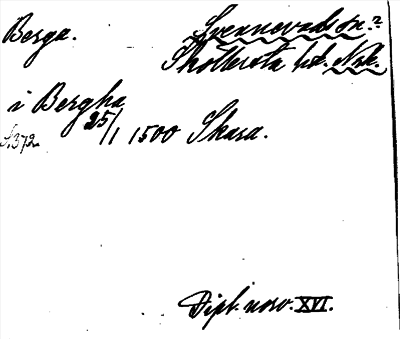 Berga. Svennevads sn.?
Skölersta hd. Nrk.
i Bergha
S.372. 25/1 1500 Skara.
Dipl. norv. XVI.